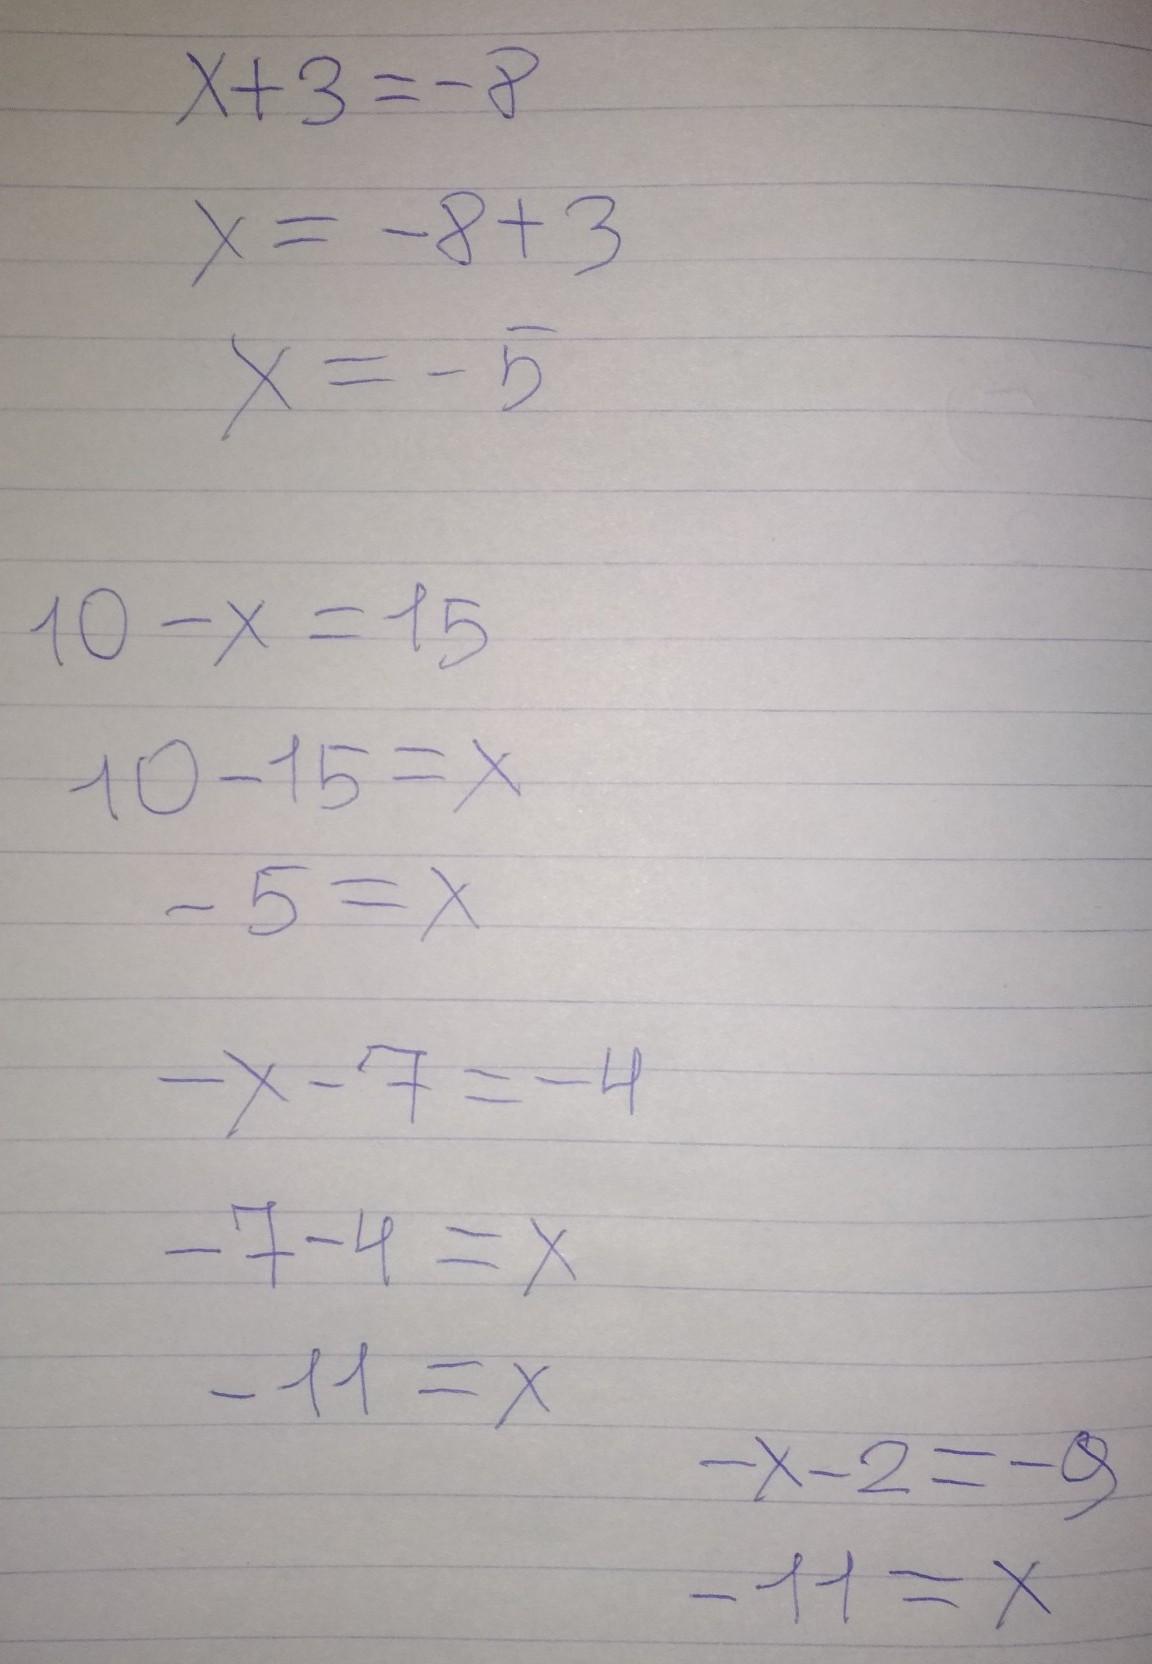 x+3=-8
x=-8+3
x=-5
10-x=15
10-15=x
-5=x
-x-7=-4
-7-4=x
-11=x
-x-2=-9
-11=x